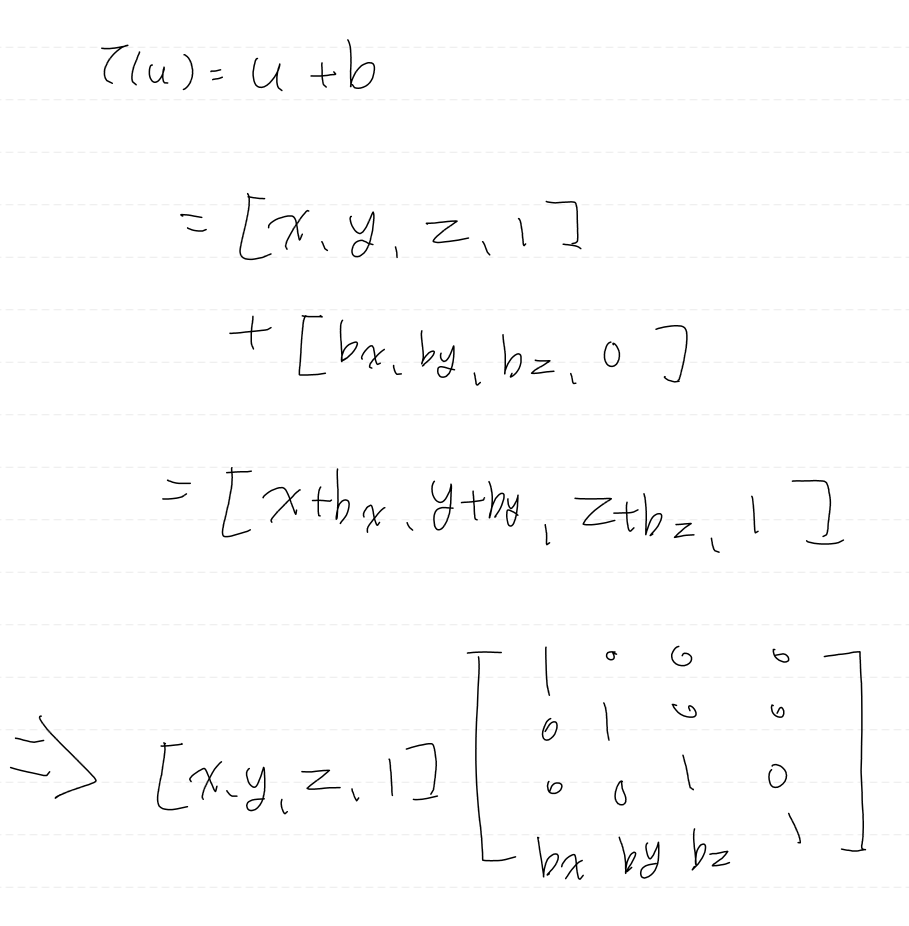 τ(u) = u + b
= [x, y, z, 1]
+ [bx, by, bz, 0]
= [x+bx, y+by, z+bz, 1]
⇒ [x, y, z, 1] [1 0 0 0
0 1 0 0
0 0 1 0
bx by bz 1]